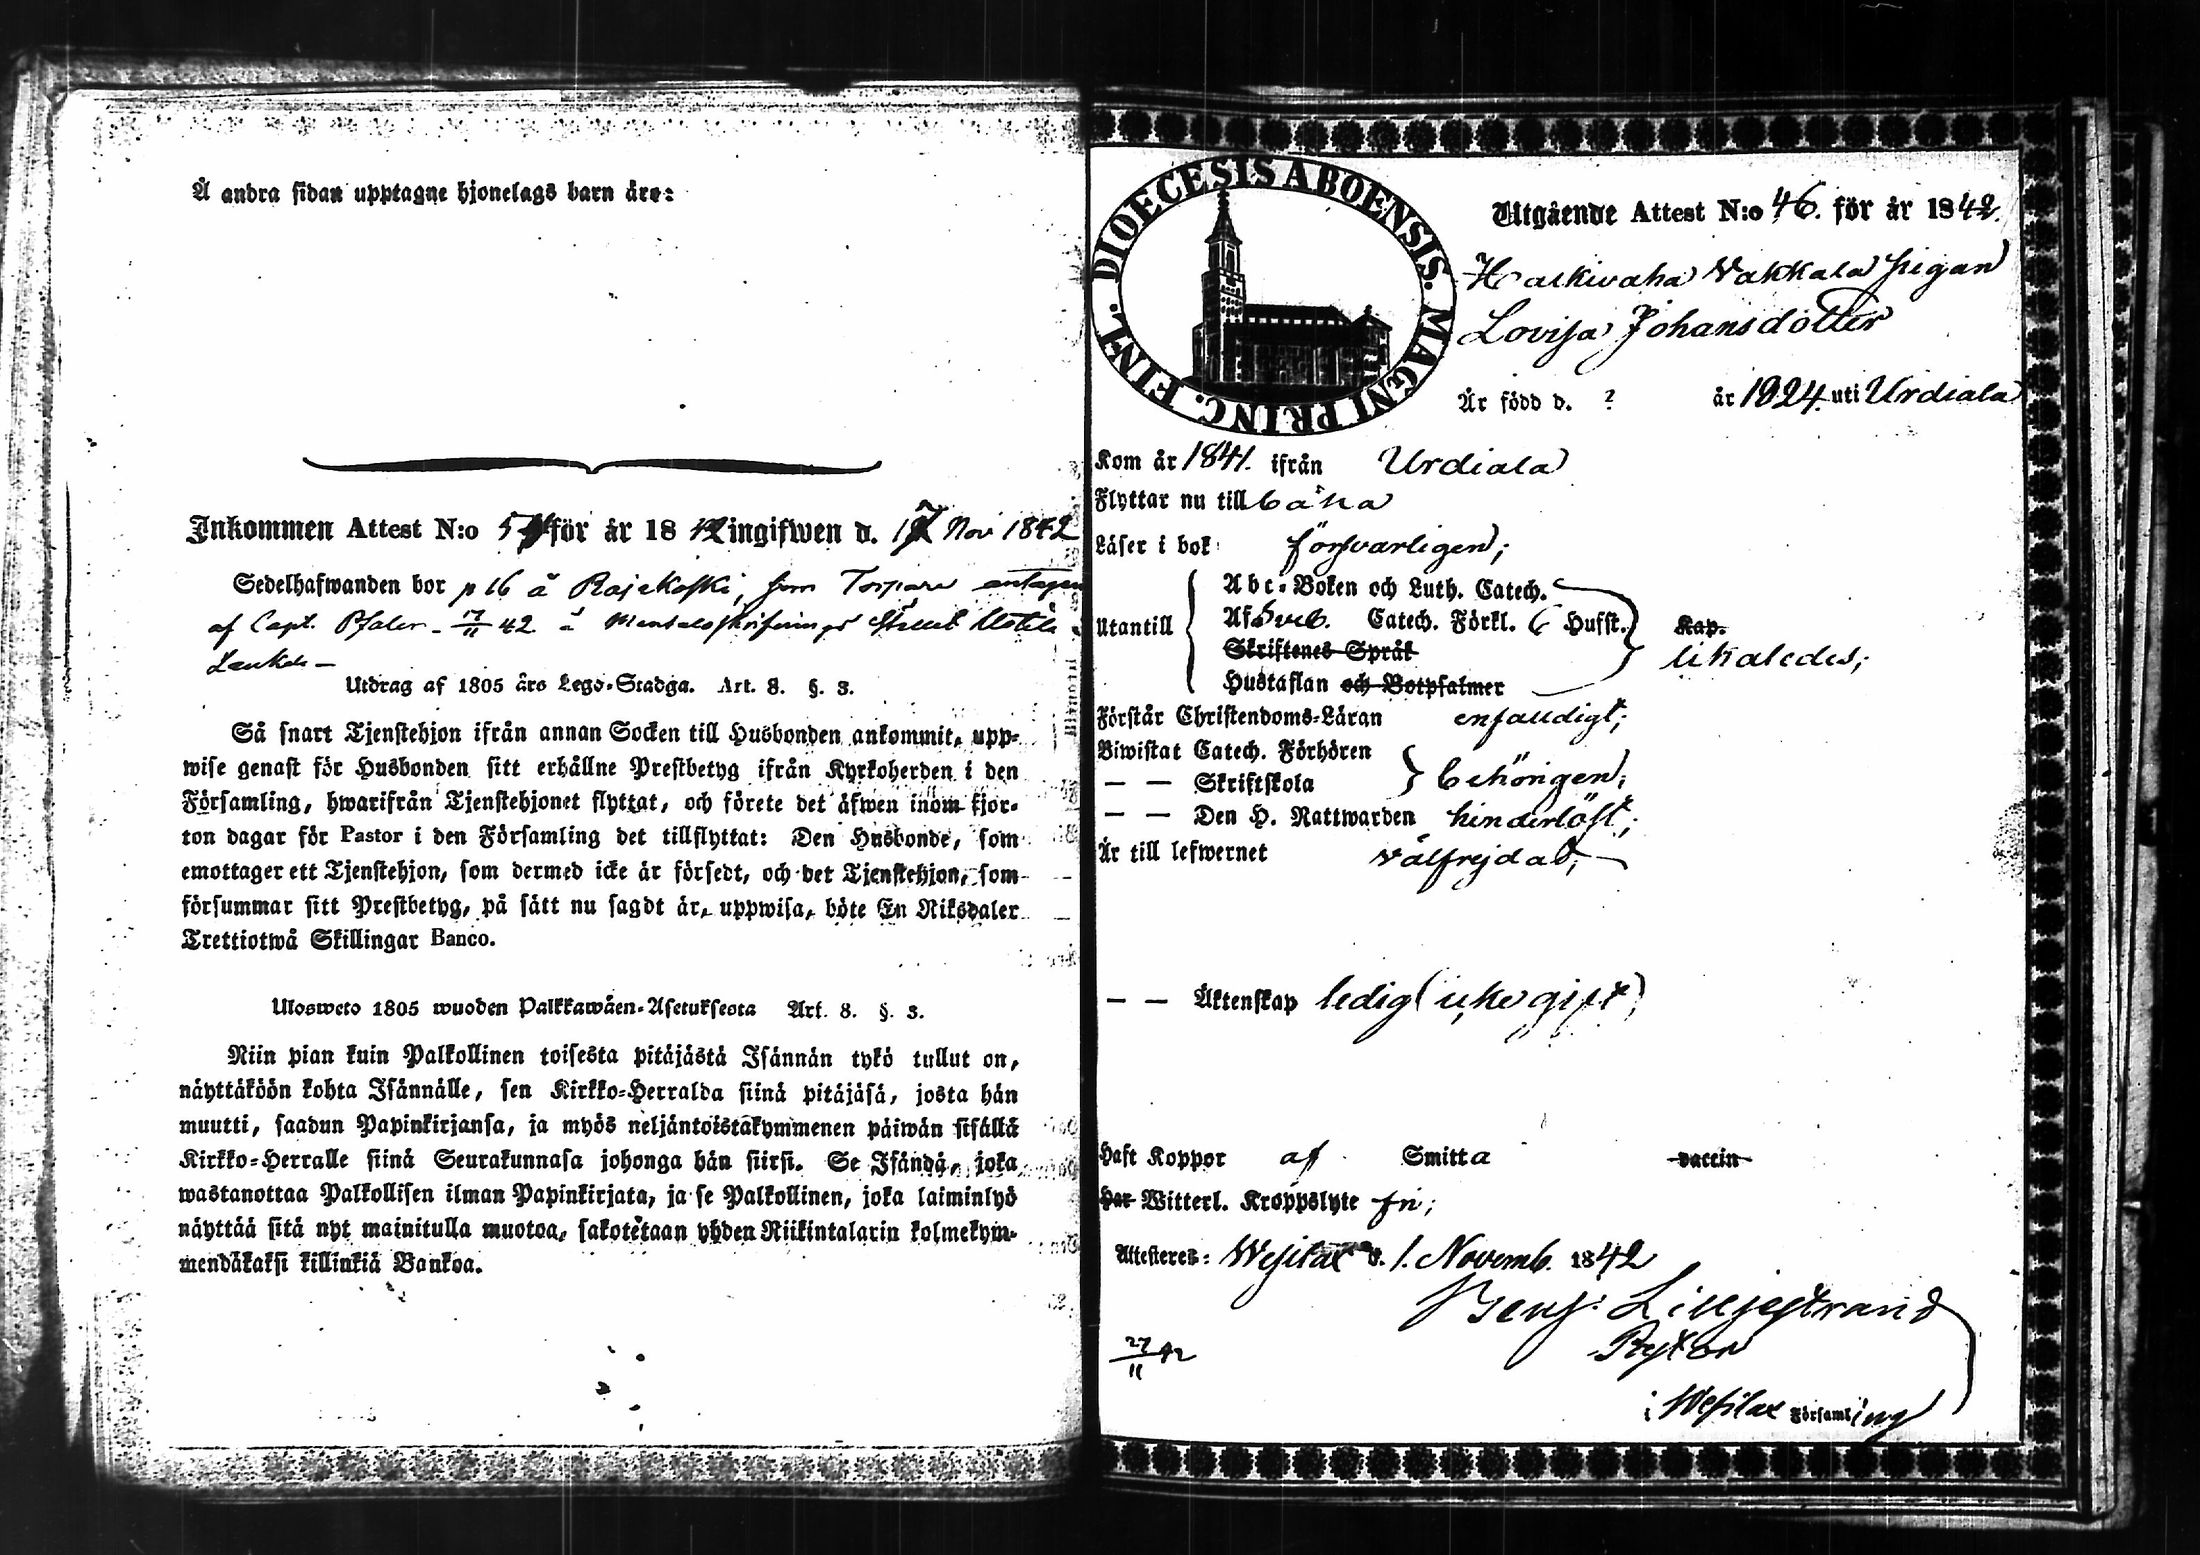 Å andra sidan upptagne hjonelags barn äro:
Inkommen Attest N:o för år 1842 ingifwen d. Nov 1842
Sedelhafwanden bor p 16 å Rajakoski, som Torpare antagen
af Capt. Pfaler 17/11 42
Utdrag af 1805 års Lego-Stadga. Art. 8. §. 3.
Så snart Tjenstehjon ifrån annan Socken till Husbonden ankommit, upp-
wise genast för Husbonden sitt erhållne Prestbetyg ifrån Kyrkoherden i den
Församling, hwarifrån Tjenstehjonet flyttat, och förete det äfwen inom fjor-
ton dagar för Pastor i den Församling det tillflyttat: Den Husbonde, som
emottager ett Tjenstehjon, som dermed icke är försedt, och det Tjenstehjon, som
försummar sitt Prestbetyg, på sätt nu sagdt är, uppwisa, böte En Riksdaler
Trettiotwå Skillingar Banco.
Ulosweto 1805 wuoden Palkkawäen-Asetuksesta Art. 8. §. 3.
Niin pian kuin Palkollinen toisesta pitäjästä Isännän tykö tullut on,
näyttäköön kohta Isännälle, sen Kirkko-Herralda siinä pitäjäsä, josta hän
muutti, saadun Papinkirjansa, ja myös neljäntoistakymmenen päiwän sisällä
Kirkko-Herralle siinä Seurakunnasa johonga hän siirsi. Se Isändä, joka
wastanottaa Palkollisen ilman Papinkirjata, ja se Palkollinen, joka laiminlyö
näyttää sitä nyt mainitulla muotoa, sakotetaan yhden Riikintalarin kolmekym-
mendäkaksi killinkiä Bankoa.
DIOECESIS ABOENSIS. MAGNI PRINC. FINL.
Utgående Attest N:o 46. för år 1842.
Haikivaha Vakkala pigan
Lovisa Johansdotter
Är född d. ? år 1824 uti Urdiala
Kom år 1841. ifrån Urdiala
Flyttar nu till
Läser i bok försvarligen;
Utantill
Abc-Boken och Luth. Catech.
Catech. Förkl. Husst. Kap.
Skriftenes Språk likaledes;
Hustaflan och Botpsalmer
Förstår Christendoms-Läran enfaldigt;
Biwistat Catech. Förhören
— — Skriftskola behörigen;
— — Den H. Nattwarden hinderlöst;
Är till lefwernet välfrejdad;
— — Äktenskap ledig (icke gift)
Haft Koppor af Smitta vaccin
Har Witterl. Kroppslyte fri;
Attesteres: Wesilax d. 1. Novemb. 1842
Benj: Liljestrand
27/11 42
i Wesilax Församling